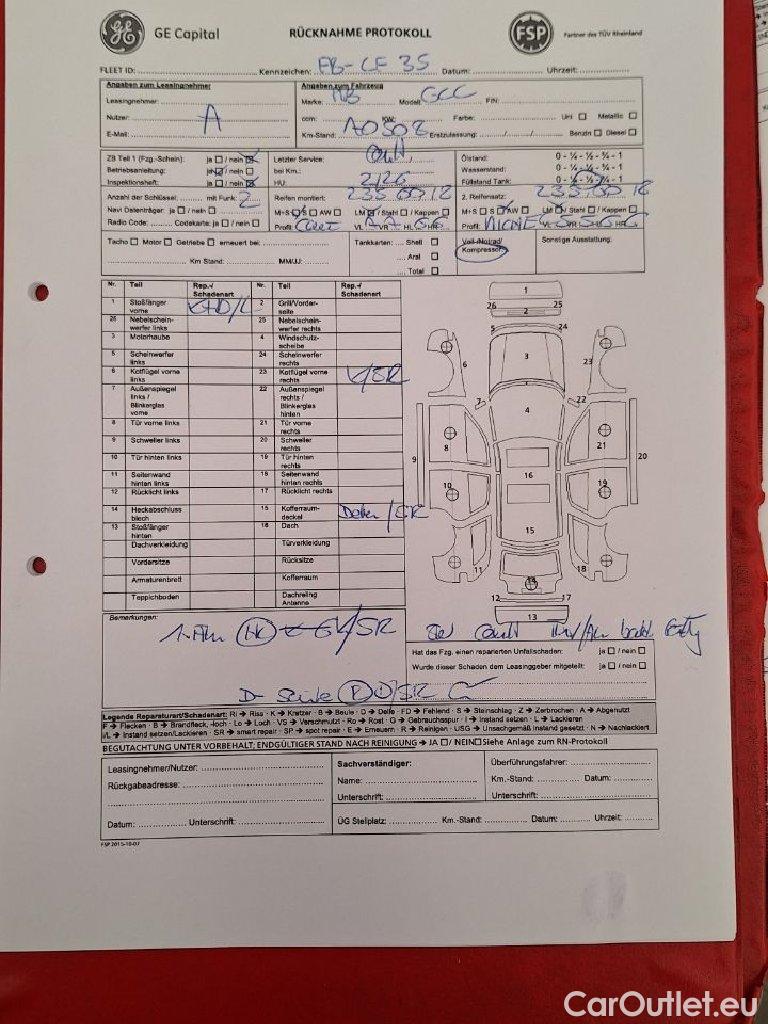 GE Capital
RÜCKNAHME PROTOKOLL
FSP
Partner des TÜV Rheinland
FLEET ID: Kennzeichen: EB-CF 35 Datum: Uhrzeit:
Angaben zum Leasingnehmer
Leasingnehmer:
Nutzer: A
E-Mail:
Angaben zum Fahrzeug
Marke: MB Modell: GLC FIN:
ccm: KW: Farbe: Uni Metallic
Km-Stand: Erstzulassung: Benzin Diesel
ZB Teil 1 (Fzg.-Schein): ja / nein
Betriebsanleitung: ja / nein
Inspektionsheft: ja / nein
Letzter Service:
bei Km.:
HU: 2/26
Ölstand: 0 - ¼ - ½ - ¾ - 1
Wasserstand: 0 - ¼ - ½ - ¾ - 1
Füllstand Tank: 0 - ¼ - ½ - ¾ - 1
Anzahl der Schlüssel: mit Funk: 2
Navi Datenträger: ja / nein
Radio Code: Codekarte: ja / nein
Reifen montiert: 235 60 18
M+S S AW LM / Stahl / Kappen
Profil: VL VR HL HR
2. Reifensatz: 235 60 18
M+S S AW LM / Stahl / Kappen
Profil: VL VR HL HR
Tacho Motor Getriebe erneuert bei:
Km Stand: MM/JJ:
Tankkarten: Shell
Aral
Total
Voll-/Notrad/
Kompressor
Sonstige Ausstattung:
Nr. Teil Rep.-/ Schadenart Nr. Teil Rep.-/ Schadenart
1 Stoßfänger vorne 2 Grill/Vorderseite
26 Nebelscheinwerfer links 25 Nebelscheinwerfer rechts
3 Motorhaube 4 Windschutzscheibe
5 Scheinwerfer links 24 Scheinwerfer rechts
6 Kotflügel vorne links 23 Kotflügel vorne rechts K/SR
7 Außenspiegel links / Blinkerglas vorne 22 Außenspiegel rechts / Blinkerglas hinten
8 Tür vorne links 21 Tür vorne rechts
9 Schweller links 20 Schweller rechts
10 Tür hinten links 19 Tür hinten rechts
11 Seitenwand hinten links 18 Seitenwand hinten rechts
12 Rücklicht links 17 Rücklicht rechts
14 Heckabschlussblech 15 Kofferraumdeckel
13 Stoßfänger hinten 16 Dach
Dachverkleidung Türverkleidung
Vordersitze Rücksitze
Armaturenbrett Kofferraum
Teppichboden Dachreling Antenne
1
26 25
2
5 24
3
6 23
7 22
4
8 21
9 20
16
10 19
15
11 18
14
12 17
13
Bemerkungen:
Hat das Fzg. einen reparierten Unfallschaden: ja / nein
Wurde dieser Schaden dem Leasinggeber mitgeteilt: ja / nein
Legende Reparaturart/Schadenart: Ri → Riss - K → Kratzer - B → Beule - D → Delle - FD → Fehlend - S → Steinschlag - Z → Zerbrochen - A → Abgenutzt
F → Flecken - B → Brandfleck, -loch - Lo → Loch - VS → Verschmutzt - Ro → Rost - G → Gebrauchsspur - I → Instand setzen - L → Lackieren
I/L → Instand setzen/Lackieren - SR → smart repair - SP → spot repair - E → Erneuern - R → Reinigen - USG → Unsachgemäß instand gesetzt - N → Nachlackiert
BEGUTACHTUNG UNTER VORBEHALT; ENDGÜLTIGER STAND NACH REINIGUNG → JA / NEIN Siehe Anlage zum RN-Protokoll
Leasingnehmer/Nutzer:
Rückgabeadresse:
Datum: Unterschrift:
Sachverständiger:
Name:
Unterschrift:
Überführungsfahrer:
Km.-Stand: Datum:
Unterschrift:
ÜG Stellplatz: Km.-Stand: Datum: Uhrzeit:
CarOutlet.eu